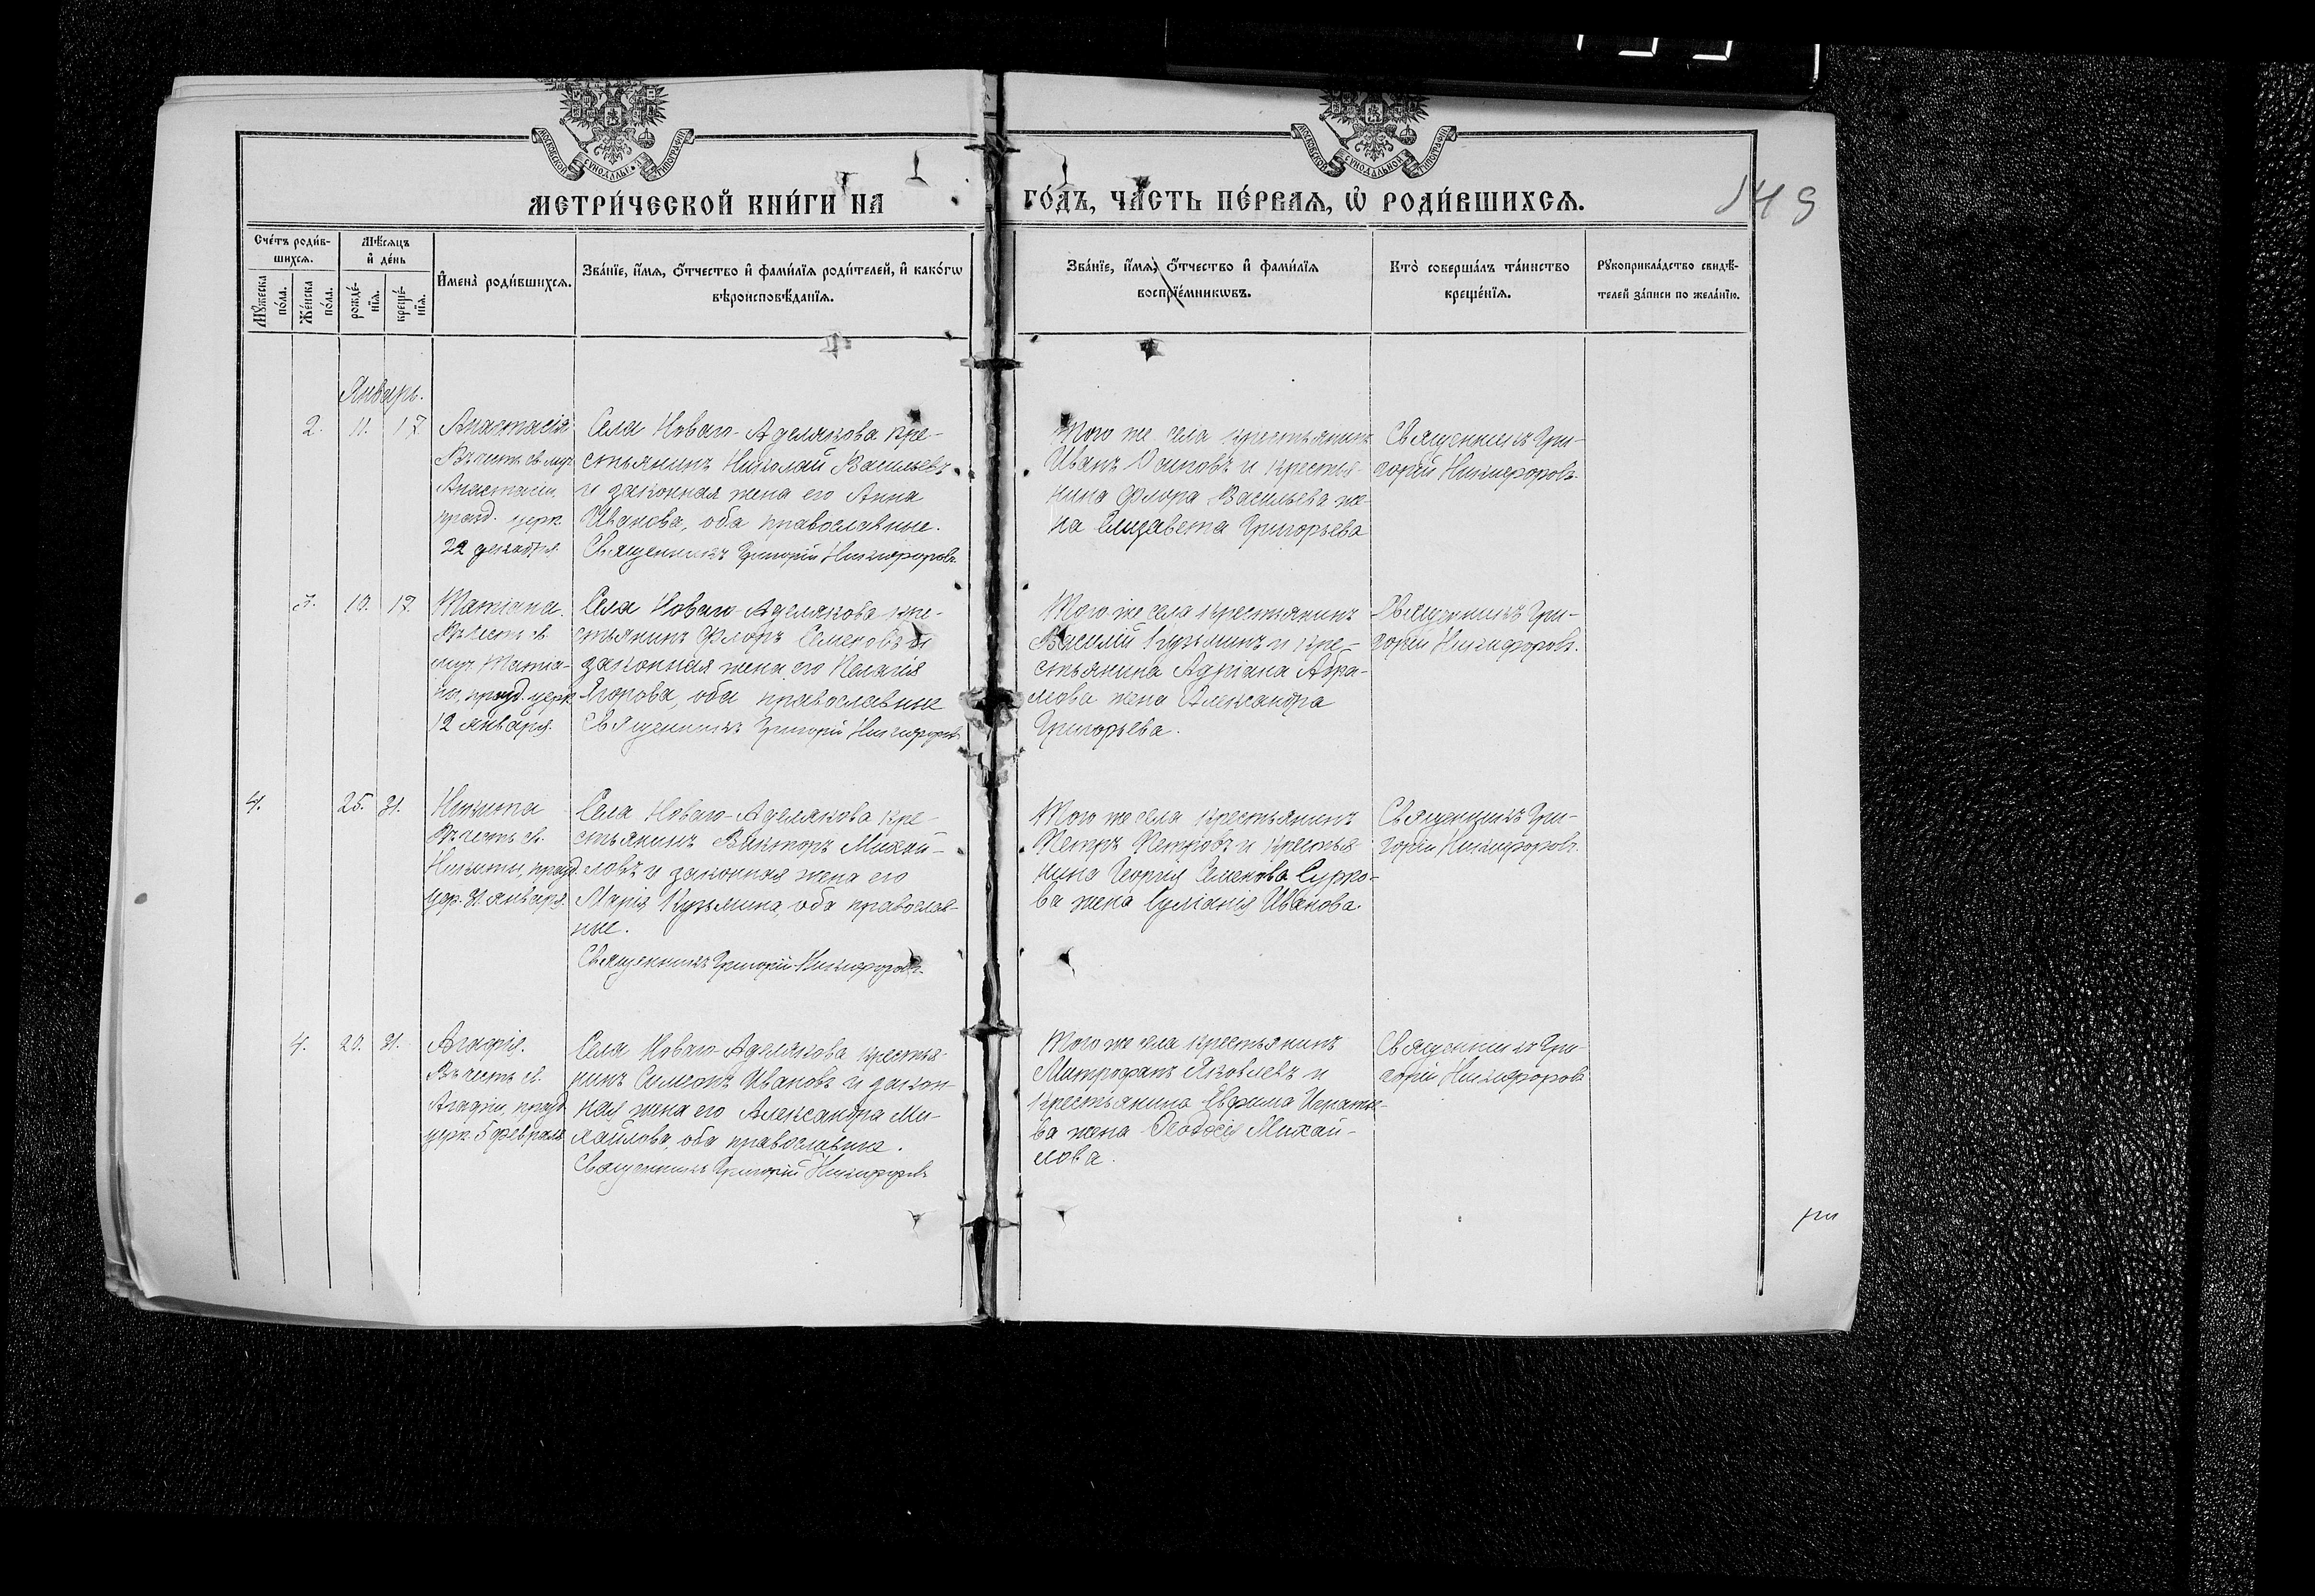 МОСКОВСКОЙ СѴНОДАЛЬН ТИПОГРАФІИ
МОСКОВСКОЙ СѴНОДАЛЬНОЙ ТИПОГРАФІИ
МЕТРИ́ЧЕСКОЙ КНИ́ГИ НА
ГО́ДЪ, ЧА́СТЬ ПЕ́РВАѦ, Ѡ҆ РОДИ́ВШИХСѦ.
149
Сче́тъ роди́в-
шихсѧ.
Мѣ́сѧцъ
и҆ де́нь
Мꙋ́жеска
по́ла.
Же́нска
по́ла.
рожде́-
нїѧ.
креще́-
нїѧ.
И҆мена̀ роди́вшихсѧ.
Зва́нїе, и҆́мѧ, ѻ҆́тчество и҆ фами́лїѧ роди́телей, и҆ како́гѡ
вѣроисповѣ́данїѧ.
Зва́нїе, и҆́мѧ, ѻ҆́тчество и҆ фами́лїѧ
воспрїе́мникѡвъ.
Кто̀ соверша́лъ та́инство
креще́нїѧ.
Рꙋкоприкла́дство свидѣ́-
телей за́писи по жела́нїю.
Январь.
2. 11. 17.
Анастасія
Въ честь св. муч.
Анастасіи,
празд. церк.
22 декабря.
Села Новаго-Аделякова кре-
стьянинъ Николай Васильевъ
и законная жена его Анна
Иванова, оба православные.
Священникъ Григорій Никифоровъ
Того же села крестьянинъ
Иванъ Осиповъ и крестья-
нина Флора Васильева же-
на Елизавета Григорьева
Священникъ Гри-
горій Никифоровъ.
3. 10. 17.
Татіана.
Въ честь св.
муч. Татіа-
ны, празд. церк.
12 января.
Села Новаго Аделякова кре-
стьянинъ Флоръ Семеновъ и
законная жена его Пелагія
Егорова, оба православные
Священникъ Григорій Никифоровъ
Того же села крестьянинъ
Василій Кузьминъ и кре-
стьянина Адріана Абра-
мова жена Александра
Григорьева.
Священникъ Гри-
горій Никифоровъ.
4. 25. 31.
Никита
Въ честь св.
Никиты, празд.
цер. 31 января.
Села Новаго-Аделякова кре-
стьянинъ Викторъ Михай-
ловъ и законная жена его
Марія Кузьмина, оба православ-
ные.
Священникъ Григорій Никифоровъ.
Того же села крестьянинъ
Петръ Петровъ и крестья-
нина Георгія Семенова Сурко-
ва жена Іуліанія Иванова.
Священникъ Гри-
горій Никифоровъ.
4. 20. 31.
Агафія.
Въ честь св.
Агафіи, празд.
церк. 5 февраля.
Села Новаго Аделякова крестья-
нинъ Симеонъ Ивановъ и закон-
ная жена его Александра Ми-
хайлова, оба православные.
Священникъ Григорій Никифоровъ
Того же села крестьянинъ
Митрофанъ Яковлевъ и
крестьянина Евфима Игнатье-
ва жена Ѳеодосія Михай-
лова.
Священникъ Гри-
горій Никифоровъ